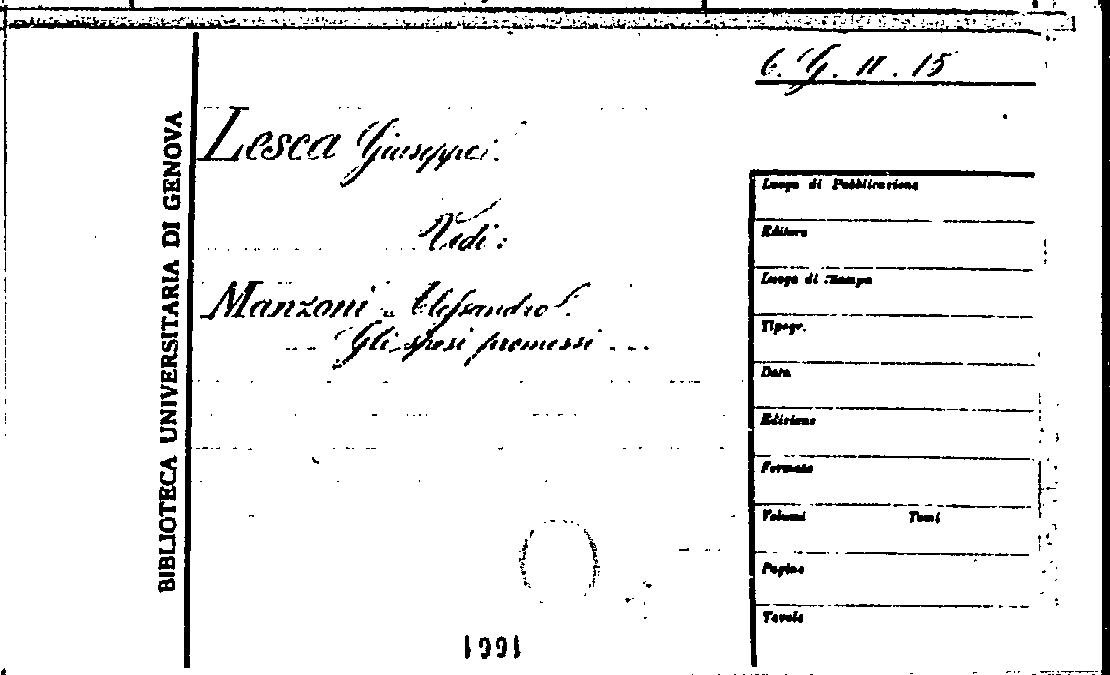 6. G. II. 15
BIBLIOTECA UNIVERSITARIA DI GENOVA
Lesca Giuseppe.
Vedi:
Manzoni Alessandro.
Gli sposi promessi
Luogo di Pubblicazione
Editore
Luogo di Stampa
Tipogr.
Data
Edizione
Formato
Volumi Tomi
Pagine
Tavole